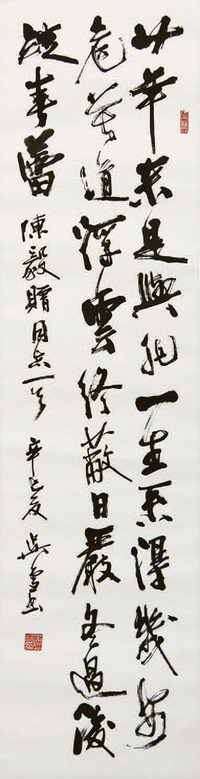 廿年来是與非一生系得幾安
危莫道浮雲終蔽日嚴冬過後
绽春蕾 陳毅贈同志一首 辛巳夏 吳雪書